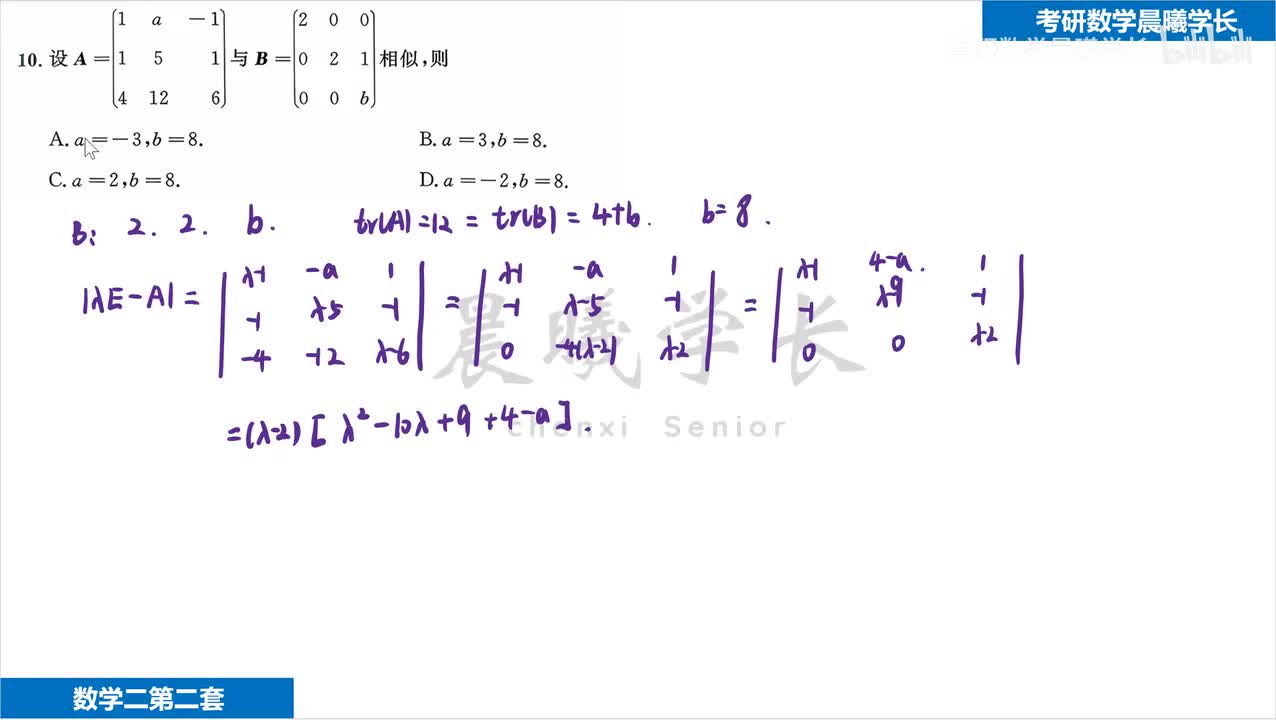 考研数学晨曦学长
10. 设 A = (1 a -1; 1 5 1; 4 12 6) 与 B = (2 0 0; 0 2 1; 0 0 b) 相似,则
A. a = -3, b = 8. B. a = 3, b = 8.
C. a = 2, b = 8. D. a = -2, b = 8.
B: 2. 2. b. tr(A) = 12 = tr(B) = 4+b. b = 8.
|λE-A| = |λ-1 -a 1; -1 λ-5 -1; -4 -12 λ-6| = |λ-1 -a 1; -1 λ-5 -1; 0 -4(λ-2) λ-2| = |λ-1 4-a. 1; -1 λ-9 -1; 0 0 λ-2|
= (λ-2) [λ² - 10λ + 9 + 4 - a].
晨曦学长
chenxi Senior
数学二第二套